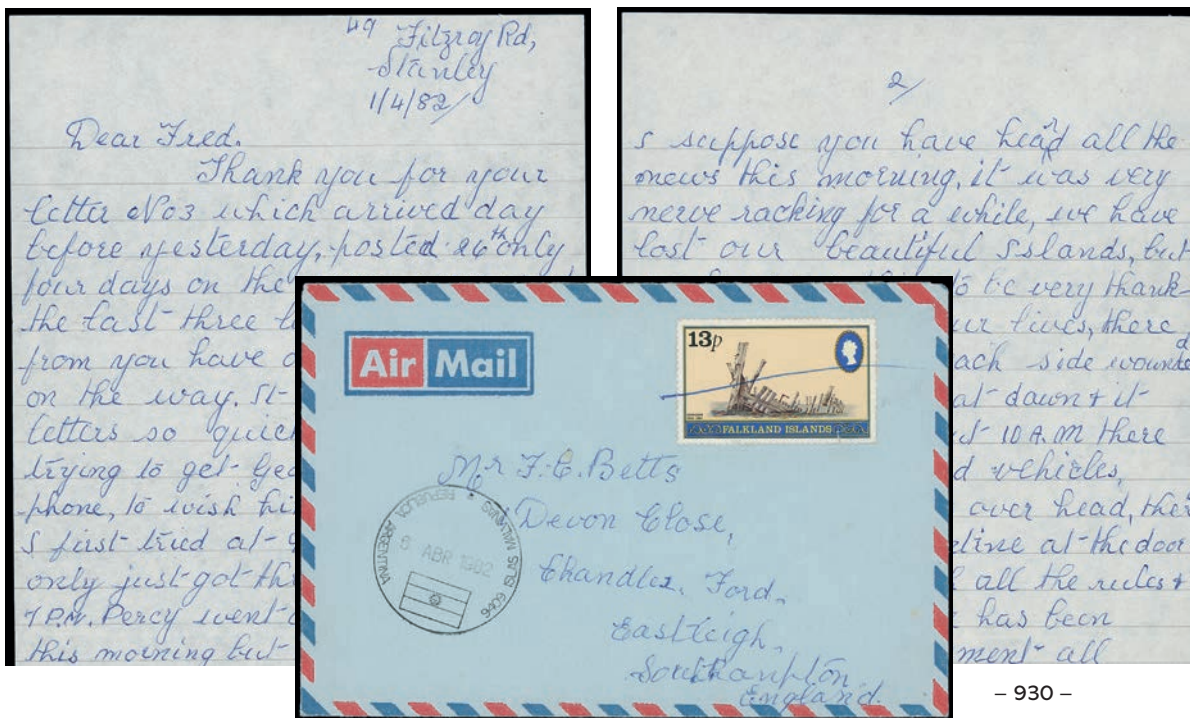 49 Fitzroy Rd,
Stanley
1/4/82/
Dear Fred.
Thank you for your
letter No3 which arrived day
before yesterday, posted 26th only
four days on the
the last three
from you have
on the way. It
letters so
trying to get
-phone, to wish
I first tried at
only just got
7 P.M. Percy went
this morning but
2/
I suppose you have heard all the
news this morning, it was very
nerve racking for a while, we have
lost our beautiful Islands, but
to be very thank-
lives, there
each side wounded
at dawn & it
10 A.M there
vehicles,
over head,
at the door
all the rules &
has been
all
Air Mail
13p
FALKLAND ISLANDS
Mr F.C. Betts
Devon Close,
Chandlers Ford,
Eastleigh,
Southampton
England.
9409 ISLAS MALVINAS REPUBLICA ARGENTINA
6 ABR 1982
– 930 –